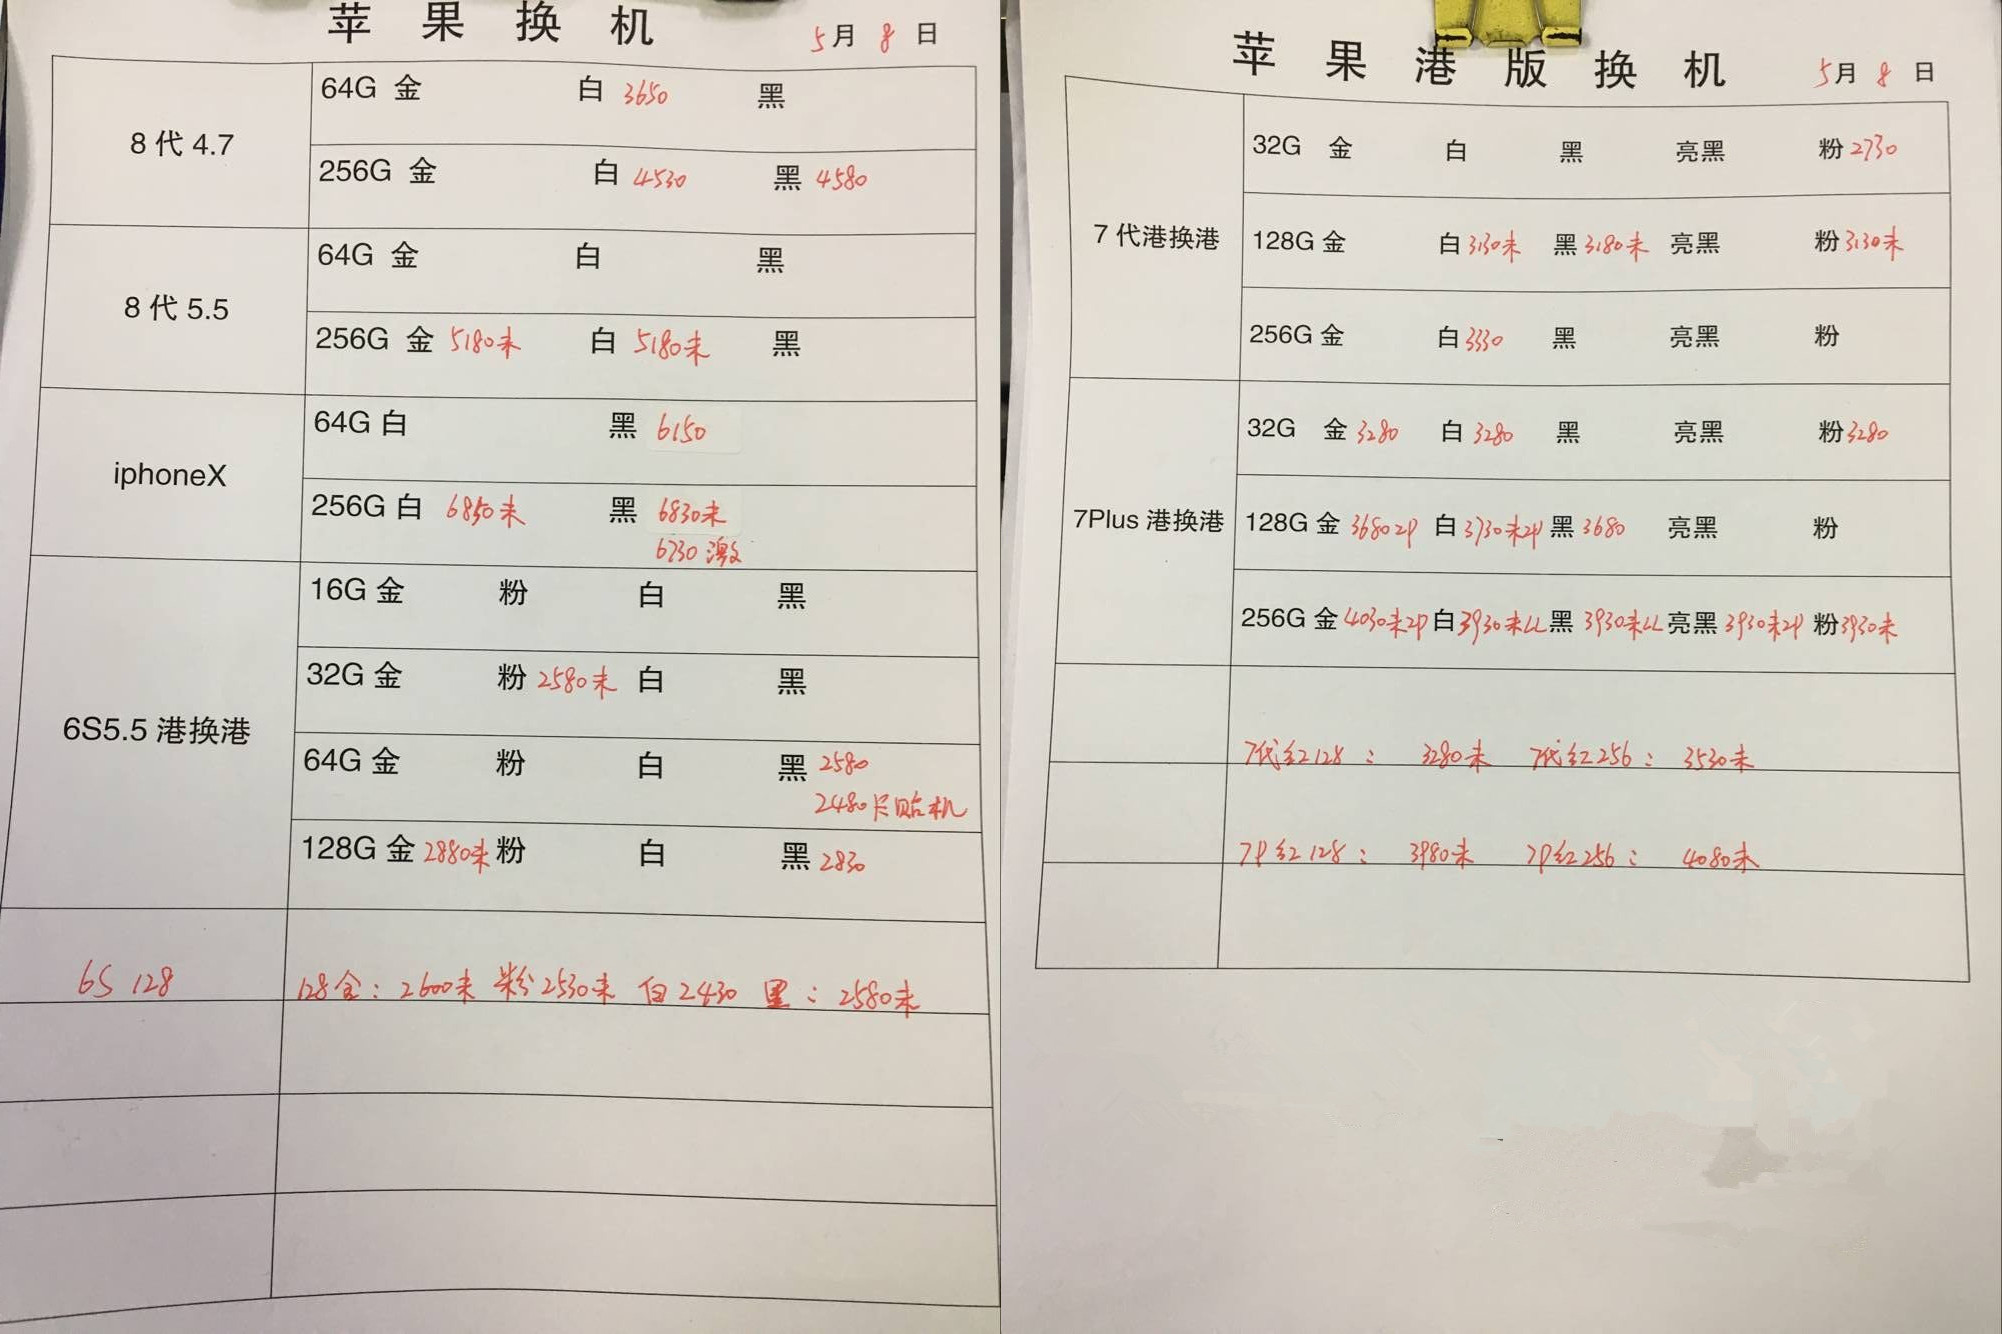 苹果换机 5月8日
8代4.7
64G 金 白 3650 黑
256G 金 白 4530 黑 4580
8代5.5
64G 金 白 黑
256G 金 5180未 白 5180未 黑
iphoneX
64G 白 黑 6150
256G 白 6850未 黑 6830未
6730 激
6S5.5 港换港
16G 金 粉 白 黑
32G 金 粉 2580未 白 黑
64G 金 粉 白 黑 2580
2480卡贴机
128G 金 2880未 粉 白 黑 2830
6S 128
128金：2600未 粉2530未 白2430 黑：2580未
苹果港版换机 5月8日
7代港换港
32G 金 白 黑 亮黑 粉 2730
128G 金 白 3130未 黑 3180未 亮黑 粉 3130未
256G 金 白 3330 黑 亮黑 粉
7Plus 港换港
32G 金 3280 白 3280 黑 亮黑 粉 3280
128G 金 3680ZP 白 3730未ZP 黑 3680 亮黑 粉
256G 金 4030未ZP 白 3930未LL 黑 3930未LL 亮黑 3930未ZP 粉 3930未
7代红128： 3280未 7代红256： 3530未
7P红128： 3980未 7P红256： 4080未